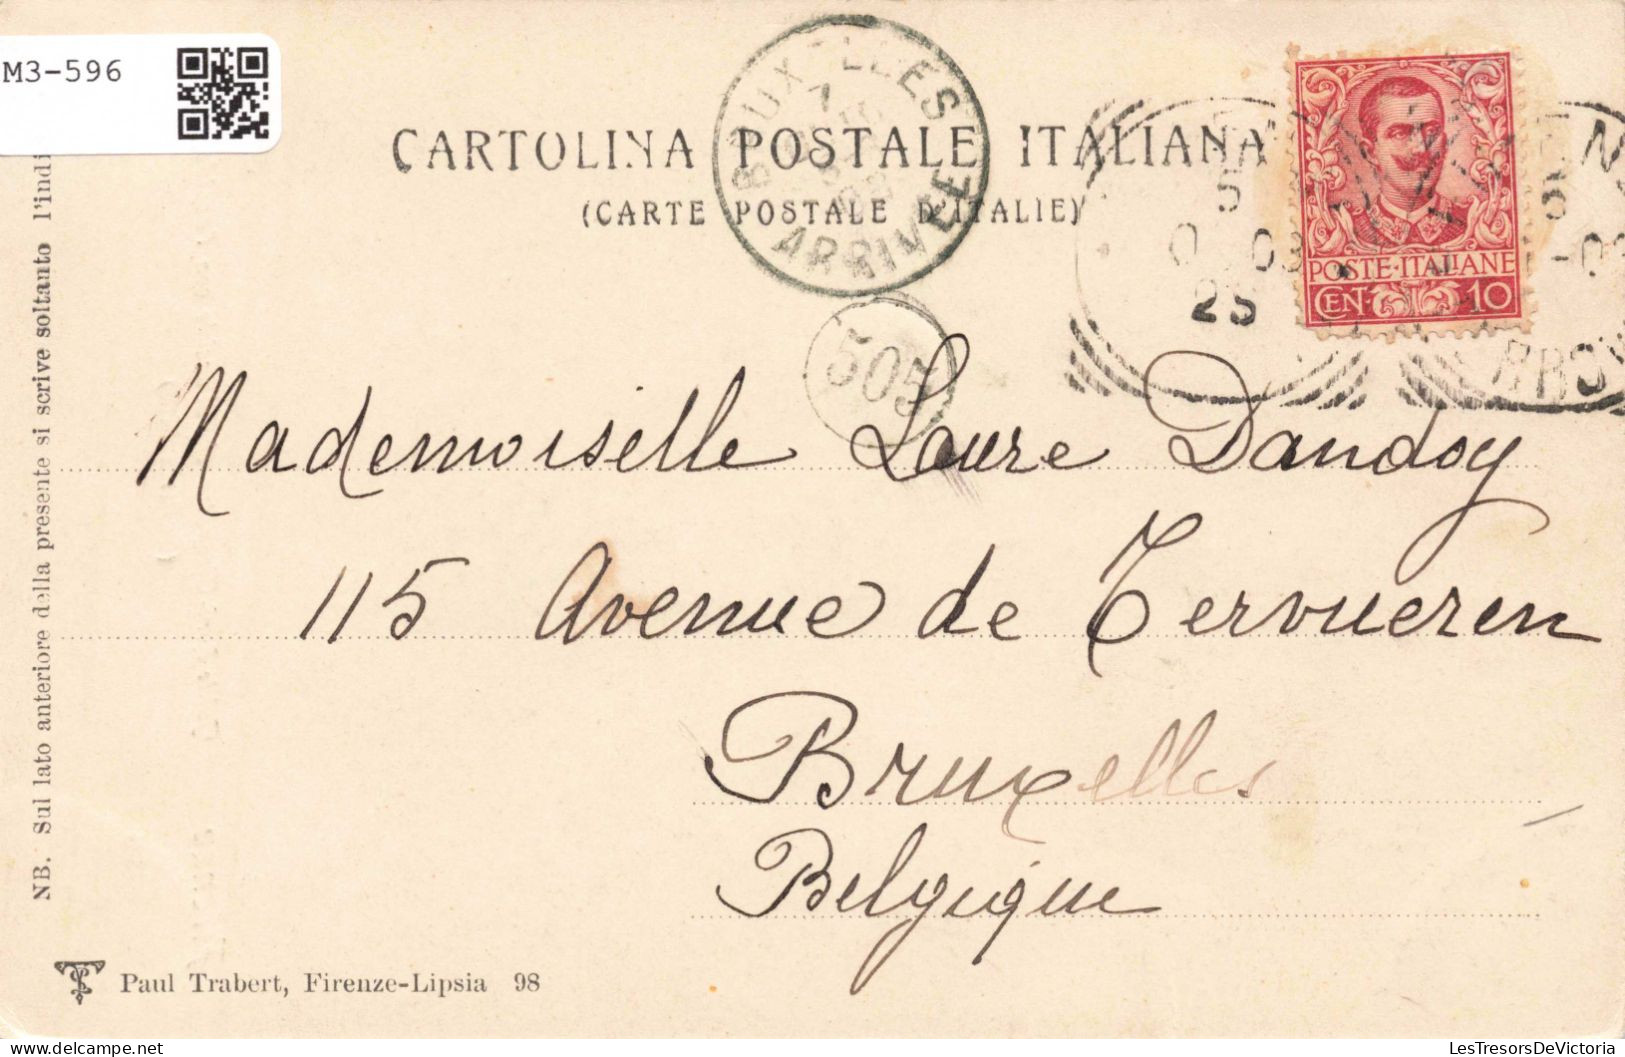 M3-596
CARTOLINA POSTALE ITALIANA
(CARTE POSTALE D'ITALIE)
BRUXELLES
7
ARRIVEE
505
POSTE·ITALIANE
CENT. 10
25
Mademoiselle Laure Dandoy
115 Avenue de Tervueren
Bruxelles
Belgique
NB. Sul lato anteriore della presente si scrive soltanto l'indi
Paul Trabert, Firenze-Lipsia 98
LesTresorsDeVictoria